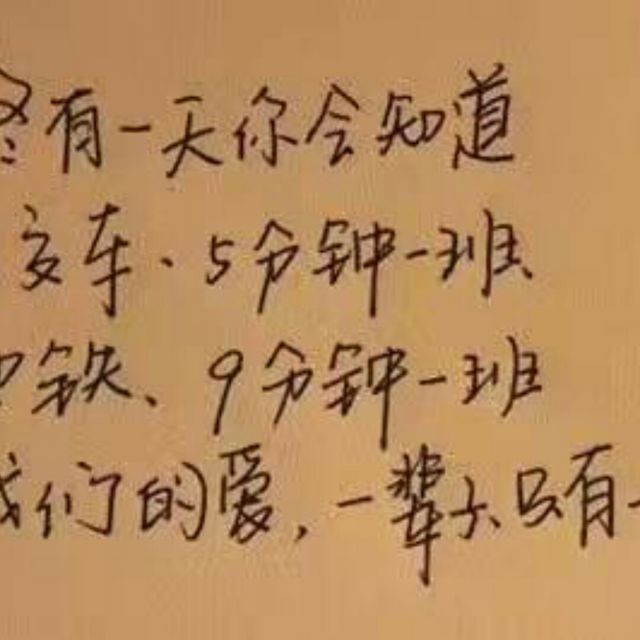 终有一天你会知道
交车·5分钟一班
铁、9分钟一班
我们的爱,一辈子只有一